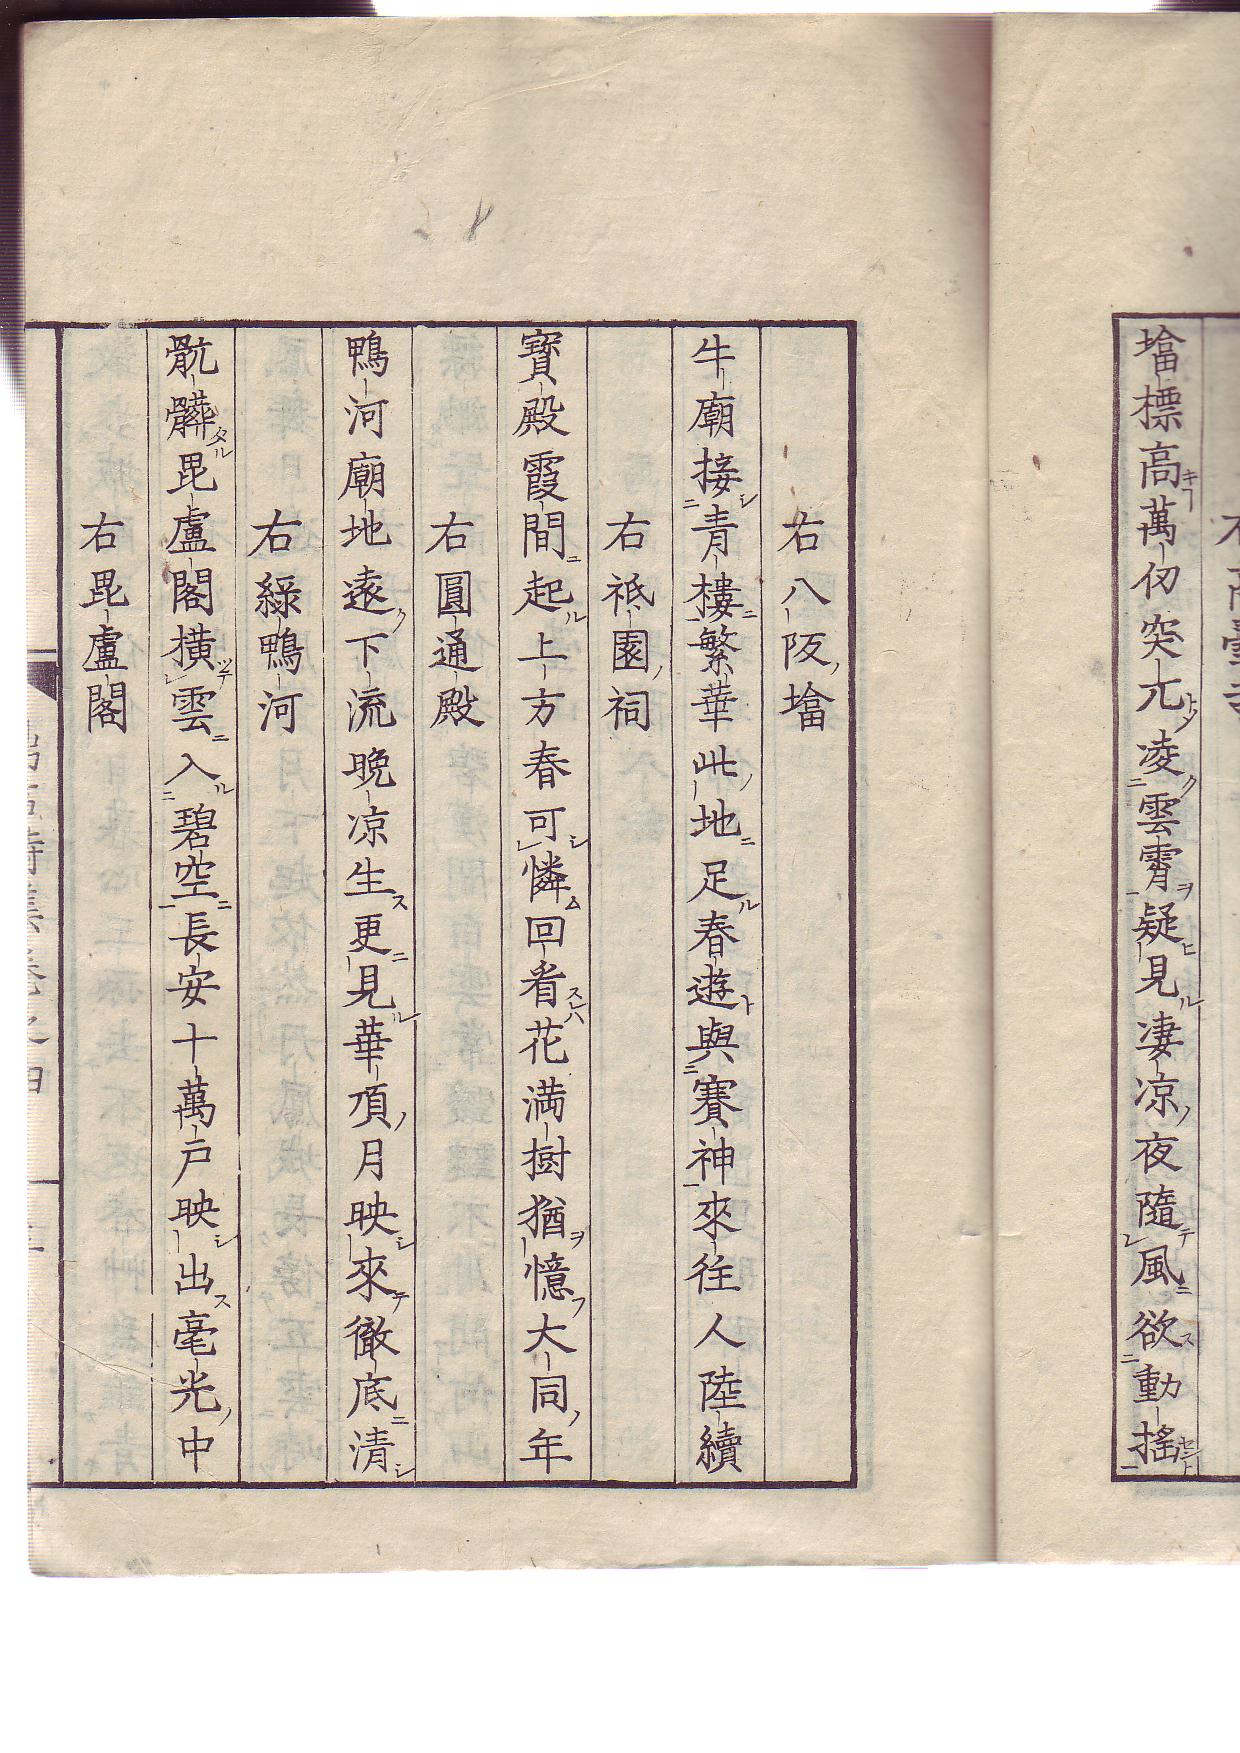 墖標高萬仞突亢凌雲霄疑見凄凉夜隨風欲動搖
右八阪墖
牛廟接青樓繁華此地足春遊與賽神來往人陸續
右祇園祠
寶殿霞間起上方春可憐回看花満樹猶憶大同年
右圓通殿
鴨河廟地遠下流晚凉生更見華頂月映來徹底清
右綠鴨河
骯髒毘盧閣橫雲入碧空長安十萬戸映出毫光中
右毘盧閣